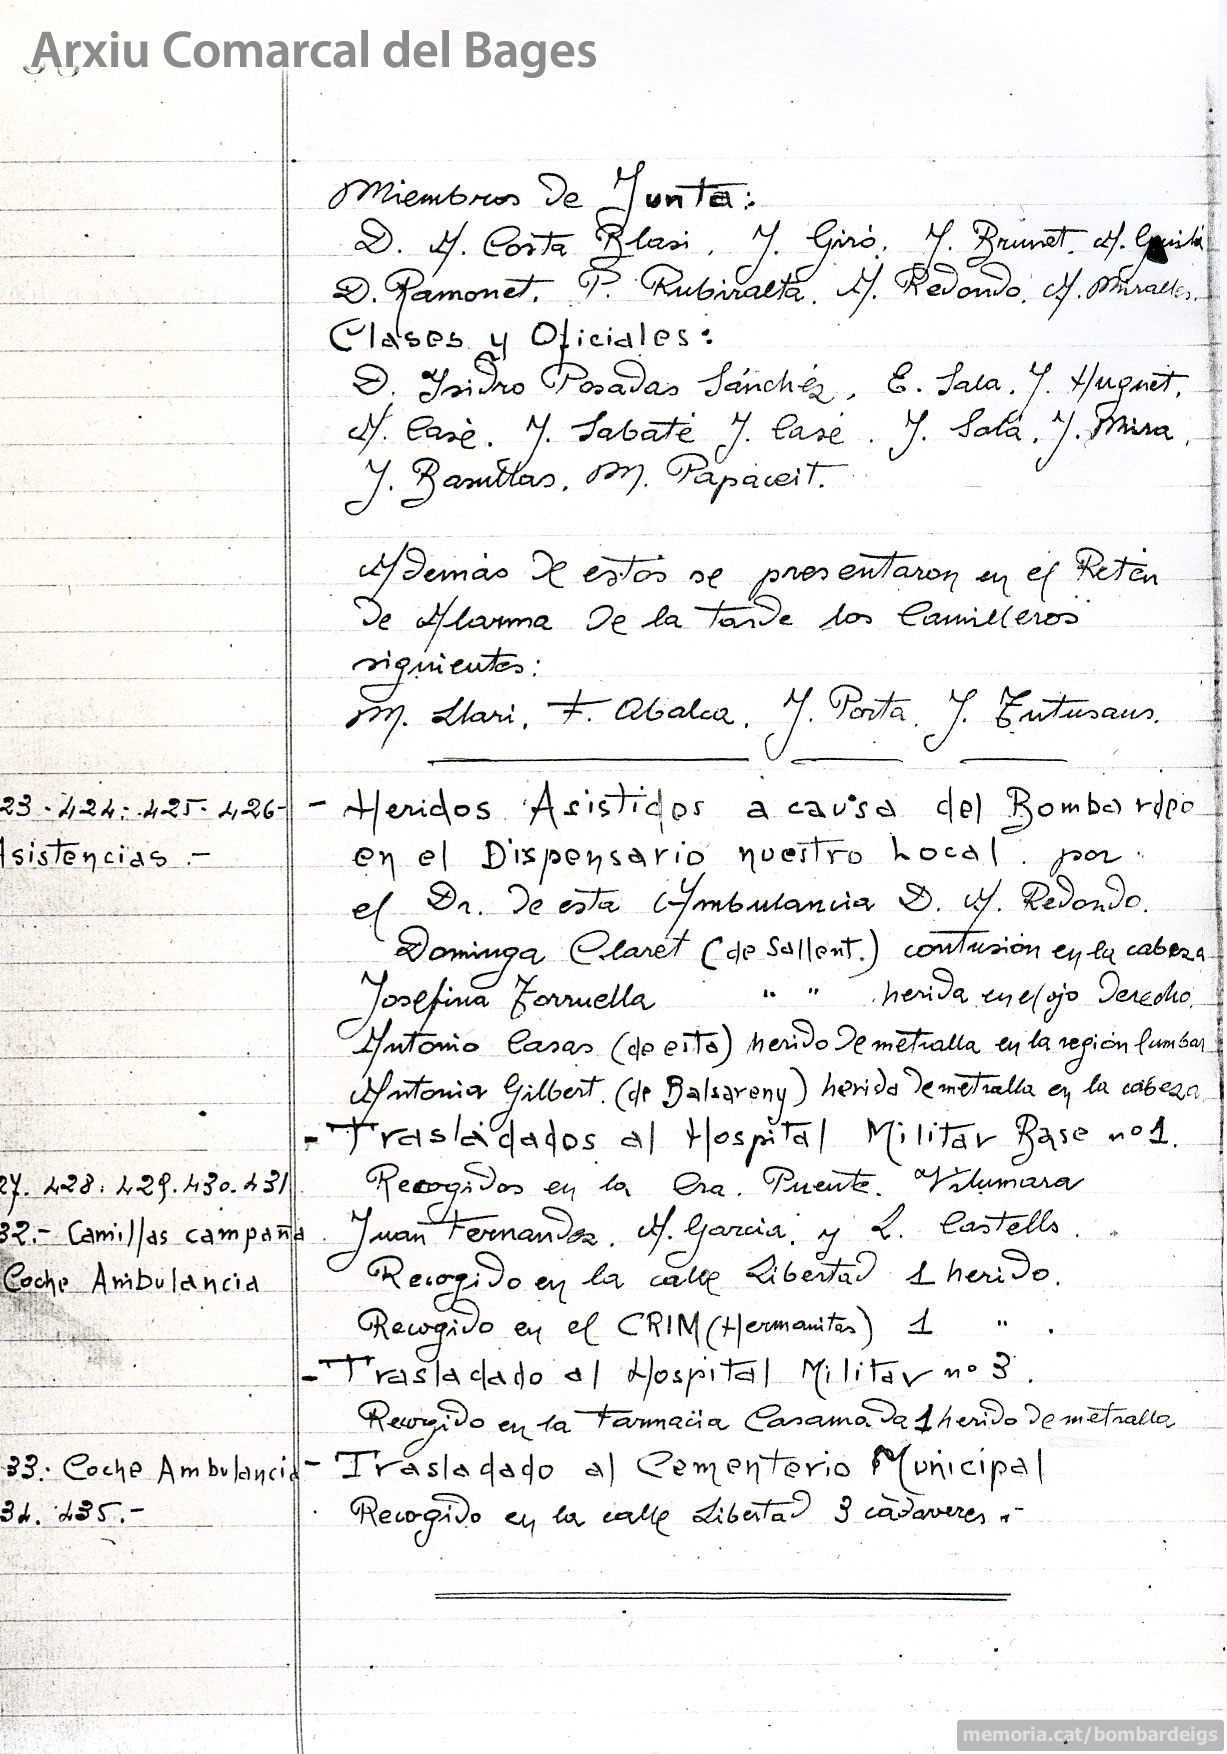 Arxiu Comarcal del Bages
Miembros de Junta:
D. A. Costa Blasi, J. Giró, J. Brunet, A.
D. Ramonet, P. Rubiralta, A. Redondo, A. Miralles.
Clases y Oficiales:
D. Isidro Posadas Sánchez, E. Sala, J. Huguet,
A. Casé, J. Sabaté J. Casé, J. Solá, J. Mira,
J. M. Papaceit.
Además de estos se presentaron en el Retén
de Alarma de la tarde los Camilleros
siguientes:
M. Llari, F. Abalca, J. Porta, J. Tutusaus.
23-424-425-426-
Asistencias.-
- Heridos Asistidos a causa del Bombardeo
en el Dispensario nuestro Local. por
el Dr. de esta Ambulancia D. A. Redondo.
Dominga Claret (de Sallent.) contusión en la cabeza
Josefina Torruella " " herida en el ojo derecho.
Antonio Casas (de esta) herido de metralla en la región lumbar
Antonia Gilbert. (de Balsareny) herida de metralla en la cabeza
- Trasladados al Hospital Militar Base nº 1.
27. 428. 429. 430. 431
32.- Camillas campaña
Coche Ambulancia
Recogidos en la Cra. Puente. Vilumara
Juan Fernandez, A. Garcia, y L. Castells.
Recogido en la calle Libertad 1 herido.
Recogido en el CRIM (Hermanitas) 1 " .
- Trasladado al Hospital Militar nº 3.
Recogido en la Farmacia Casamada 1 herido de metralla
33.- Coche Ambulancia
34. 435.-
- Trasladado al Cementerio Municipal
Recogido en la calle Libertad 3 cadaveres.-
memoria.cat/bombardeigs